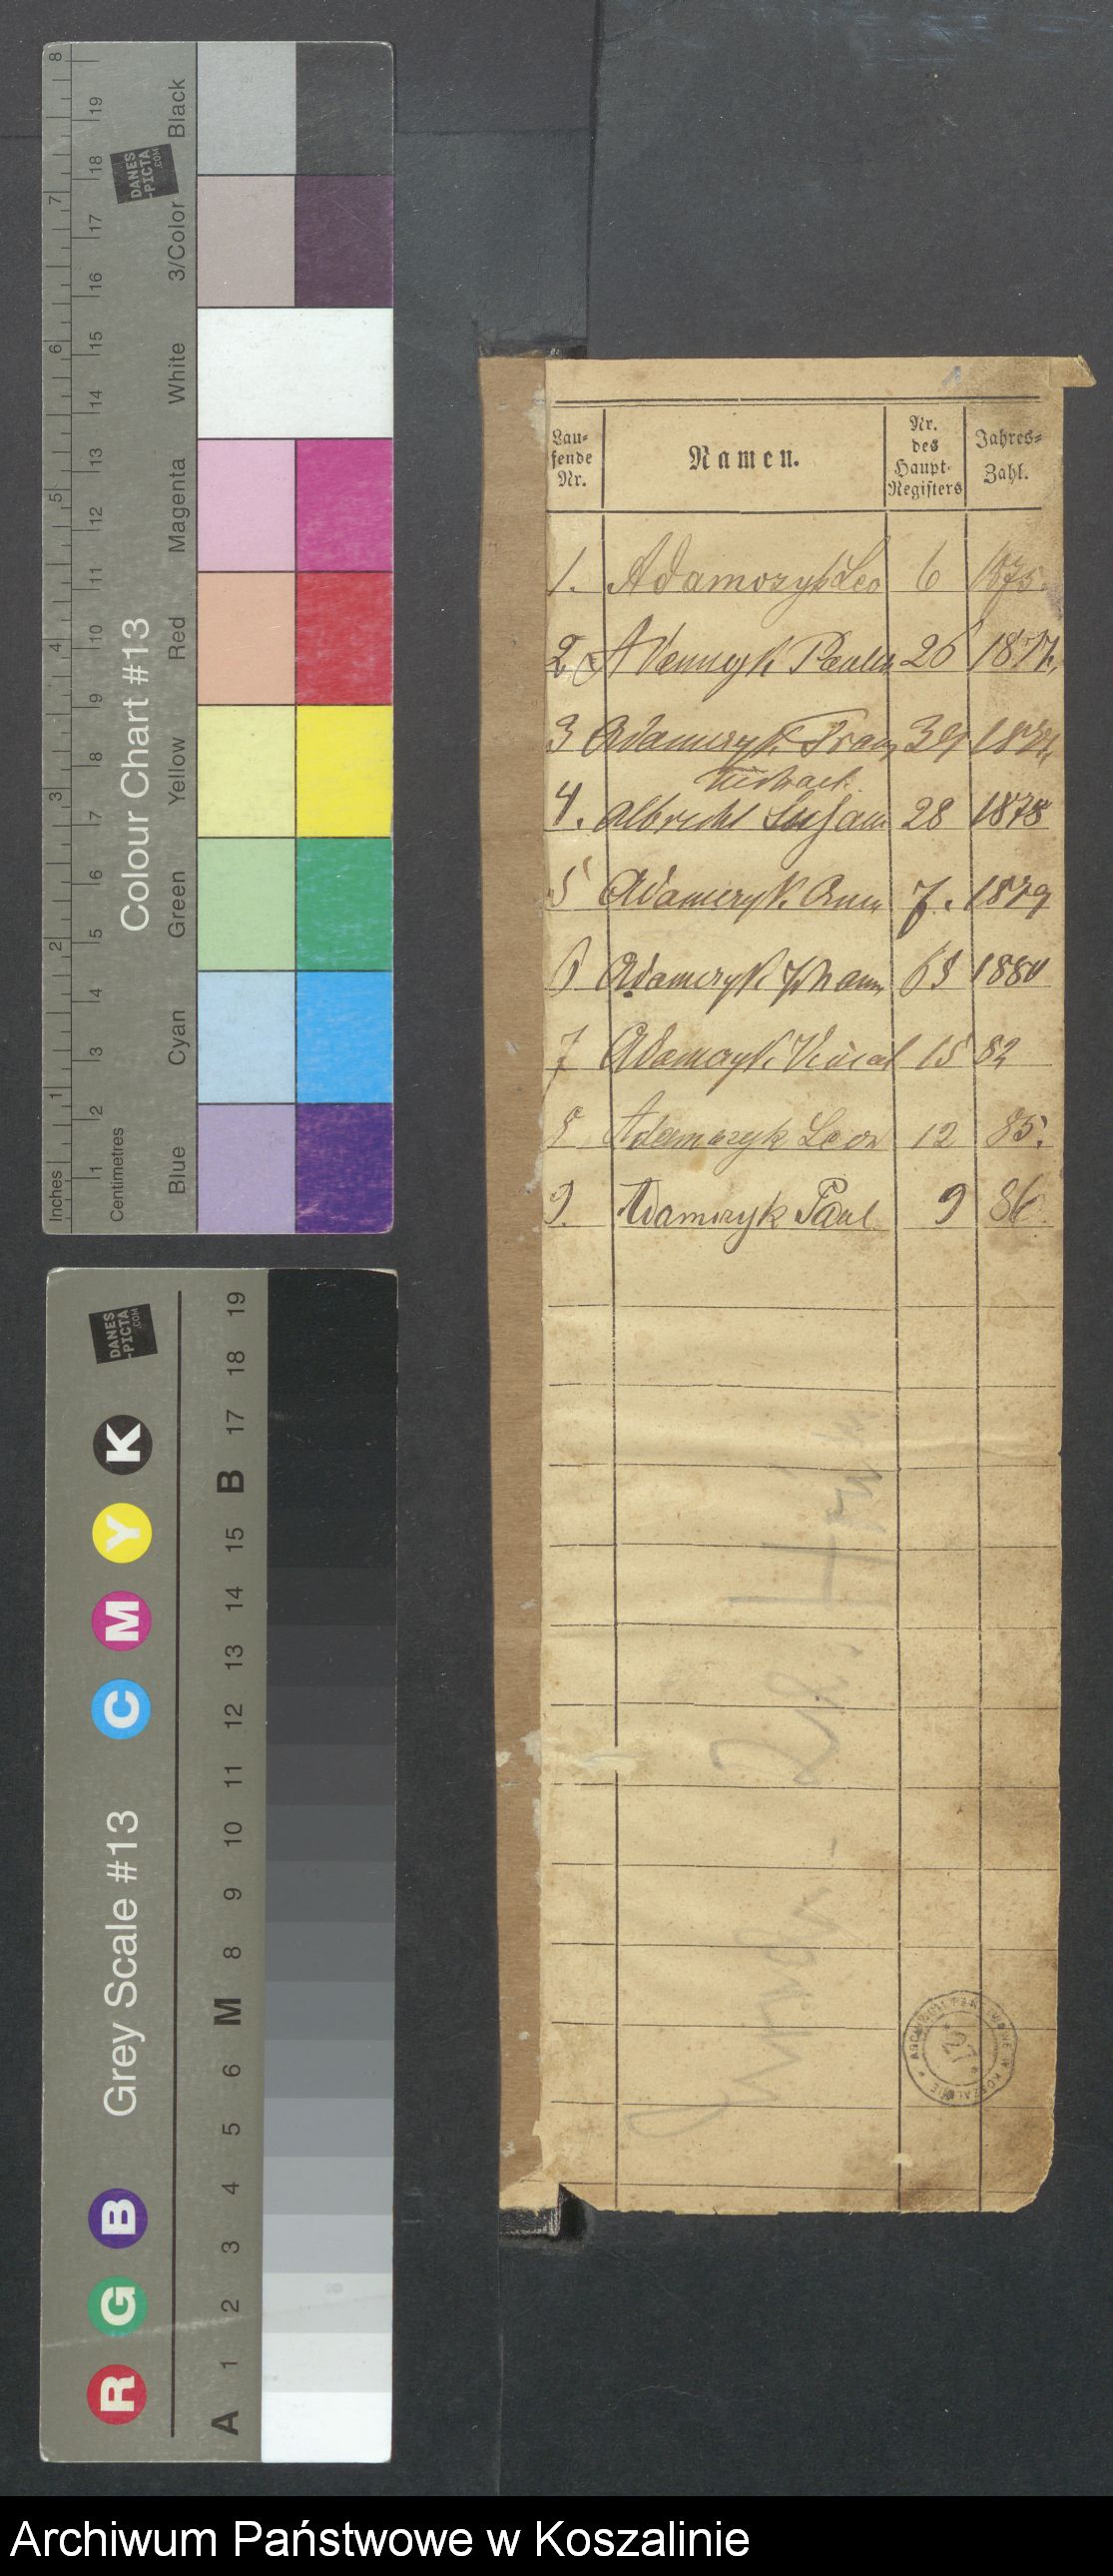 8 19 Black
DANES
-PICTA
.COM
18
7 17 3/Color
16
6 15 White
14
13
5 12 Magenta
11
4 10 Red
9
8 Yellow
3 7
6 Green
2 5
4
3 Cyan
1 2
1 Blue
Inches
Centimetres
Colour Chart #13
Lau-
fende
Nr.
Namen.
Nr.
des
Haupt-
Registers
Jahres-
Zahl.
1. Adamczyk Leo 6 1875.
2 Adamczyk Paulin 26 1877.
3 Adamczyk Franz 39 1878
4. Albrecht 28 1878
5 Adamczyk Anna 7. 1879
6 Adamczyk Johann 63 1880
7 Adamczyk Vincent 15 82
8 Adamczyk Leon 12 85.
9. Adamczyk Paul 9 86.
DANES
-PICTA
.COM
K Y M C
Grey Scale #13
B G R
19 18 17 B 15 14 13 12 11 10 9 8 M 6 5 4 3 2 1 A
Archiwum Państwowe w Koszalinie